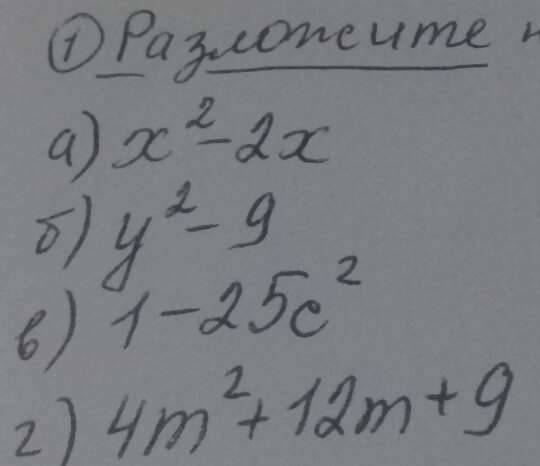 ① Разложите н
а) x² - 2x
б) y² - 9
в) 1 - 25c²
г) 4m² + 12m + 9